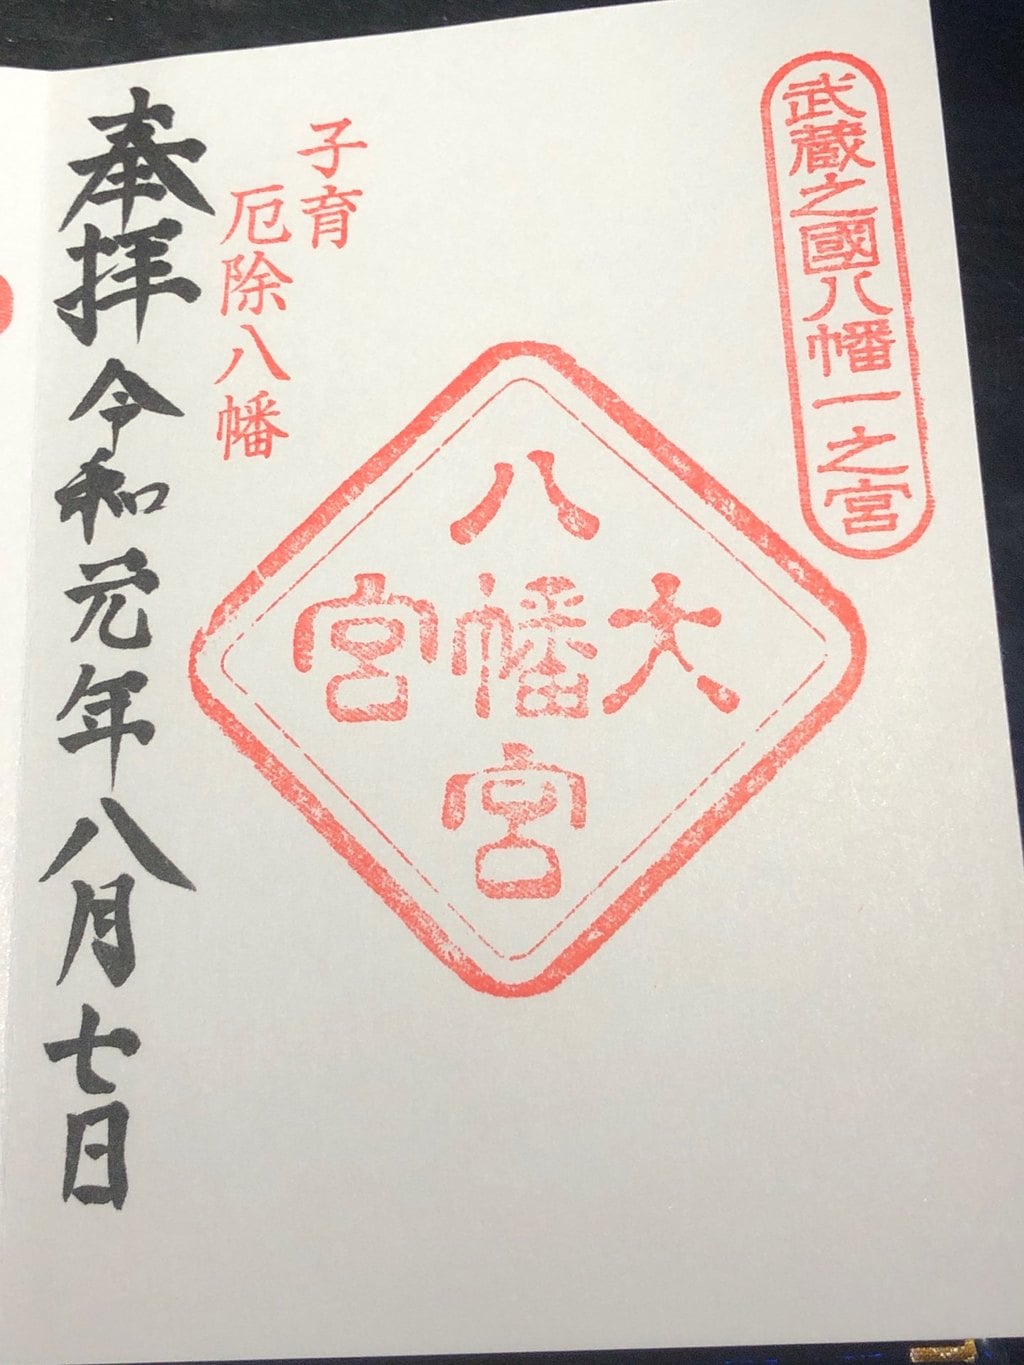 武蔵之國八幡一之宮
八幡宮
大幡宮
子育
厄除八幡
奉拝 令和元年八月七日